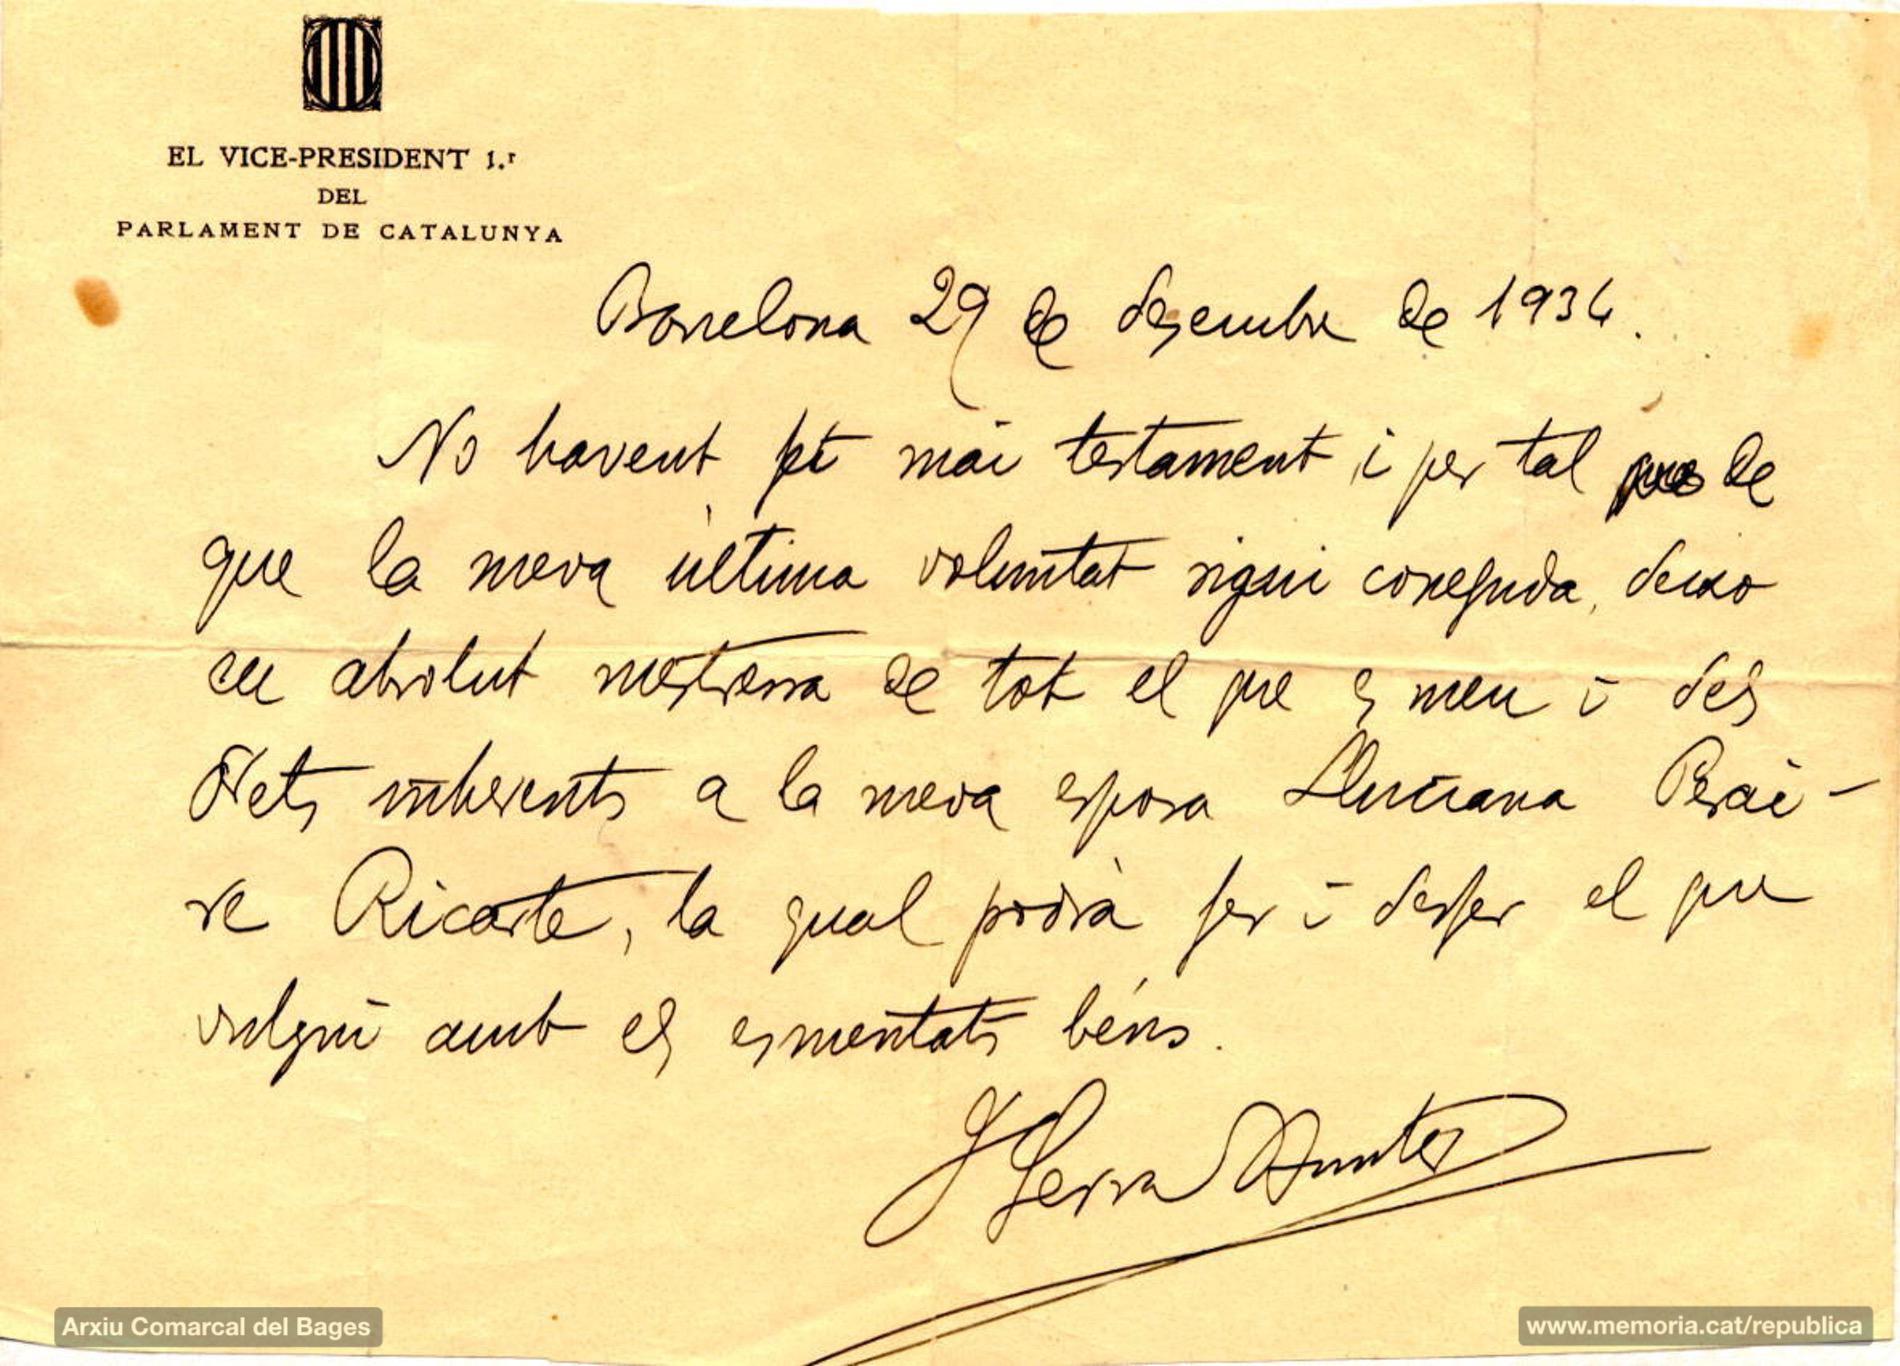 EL VICE-PRESIDENT 1.r
DEL
PARLAMENT DE CATALUNYA
Barcelona 29 de desembre de 1934.
No havent fet mai testament i per tal de
que la meva última voluntat sigui coneguda, deixo
en absolut mestressa de tot el que es meu i dels
drets inherents a la meva esposa Lluciana Perai-
re Ricarte, la qual podrà fer i desfer el que
vulgui amb els esmentats béns.
J Serra Hunter
Arxiu Comarcal del Bages
www.memoria.cat/republica